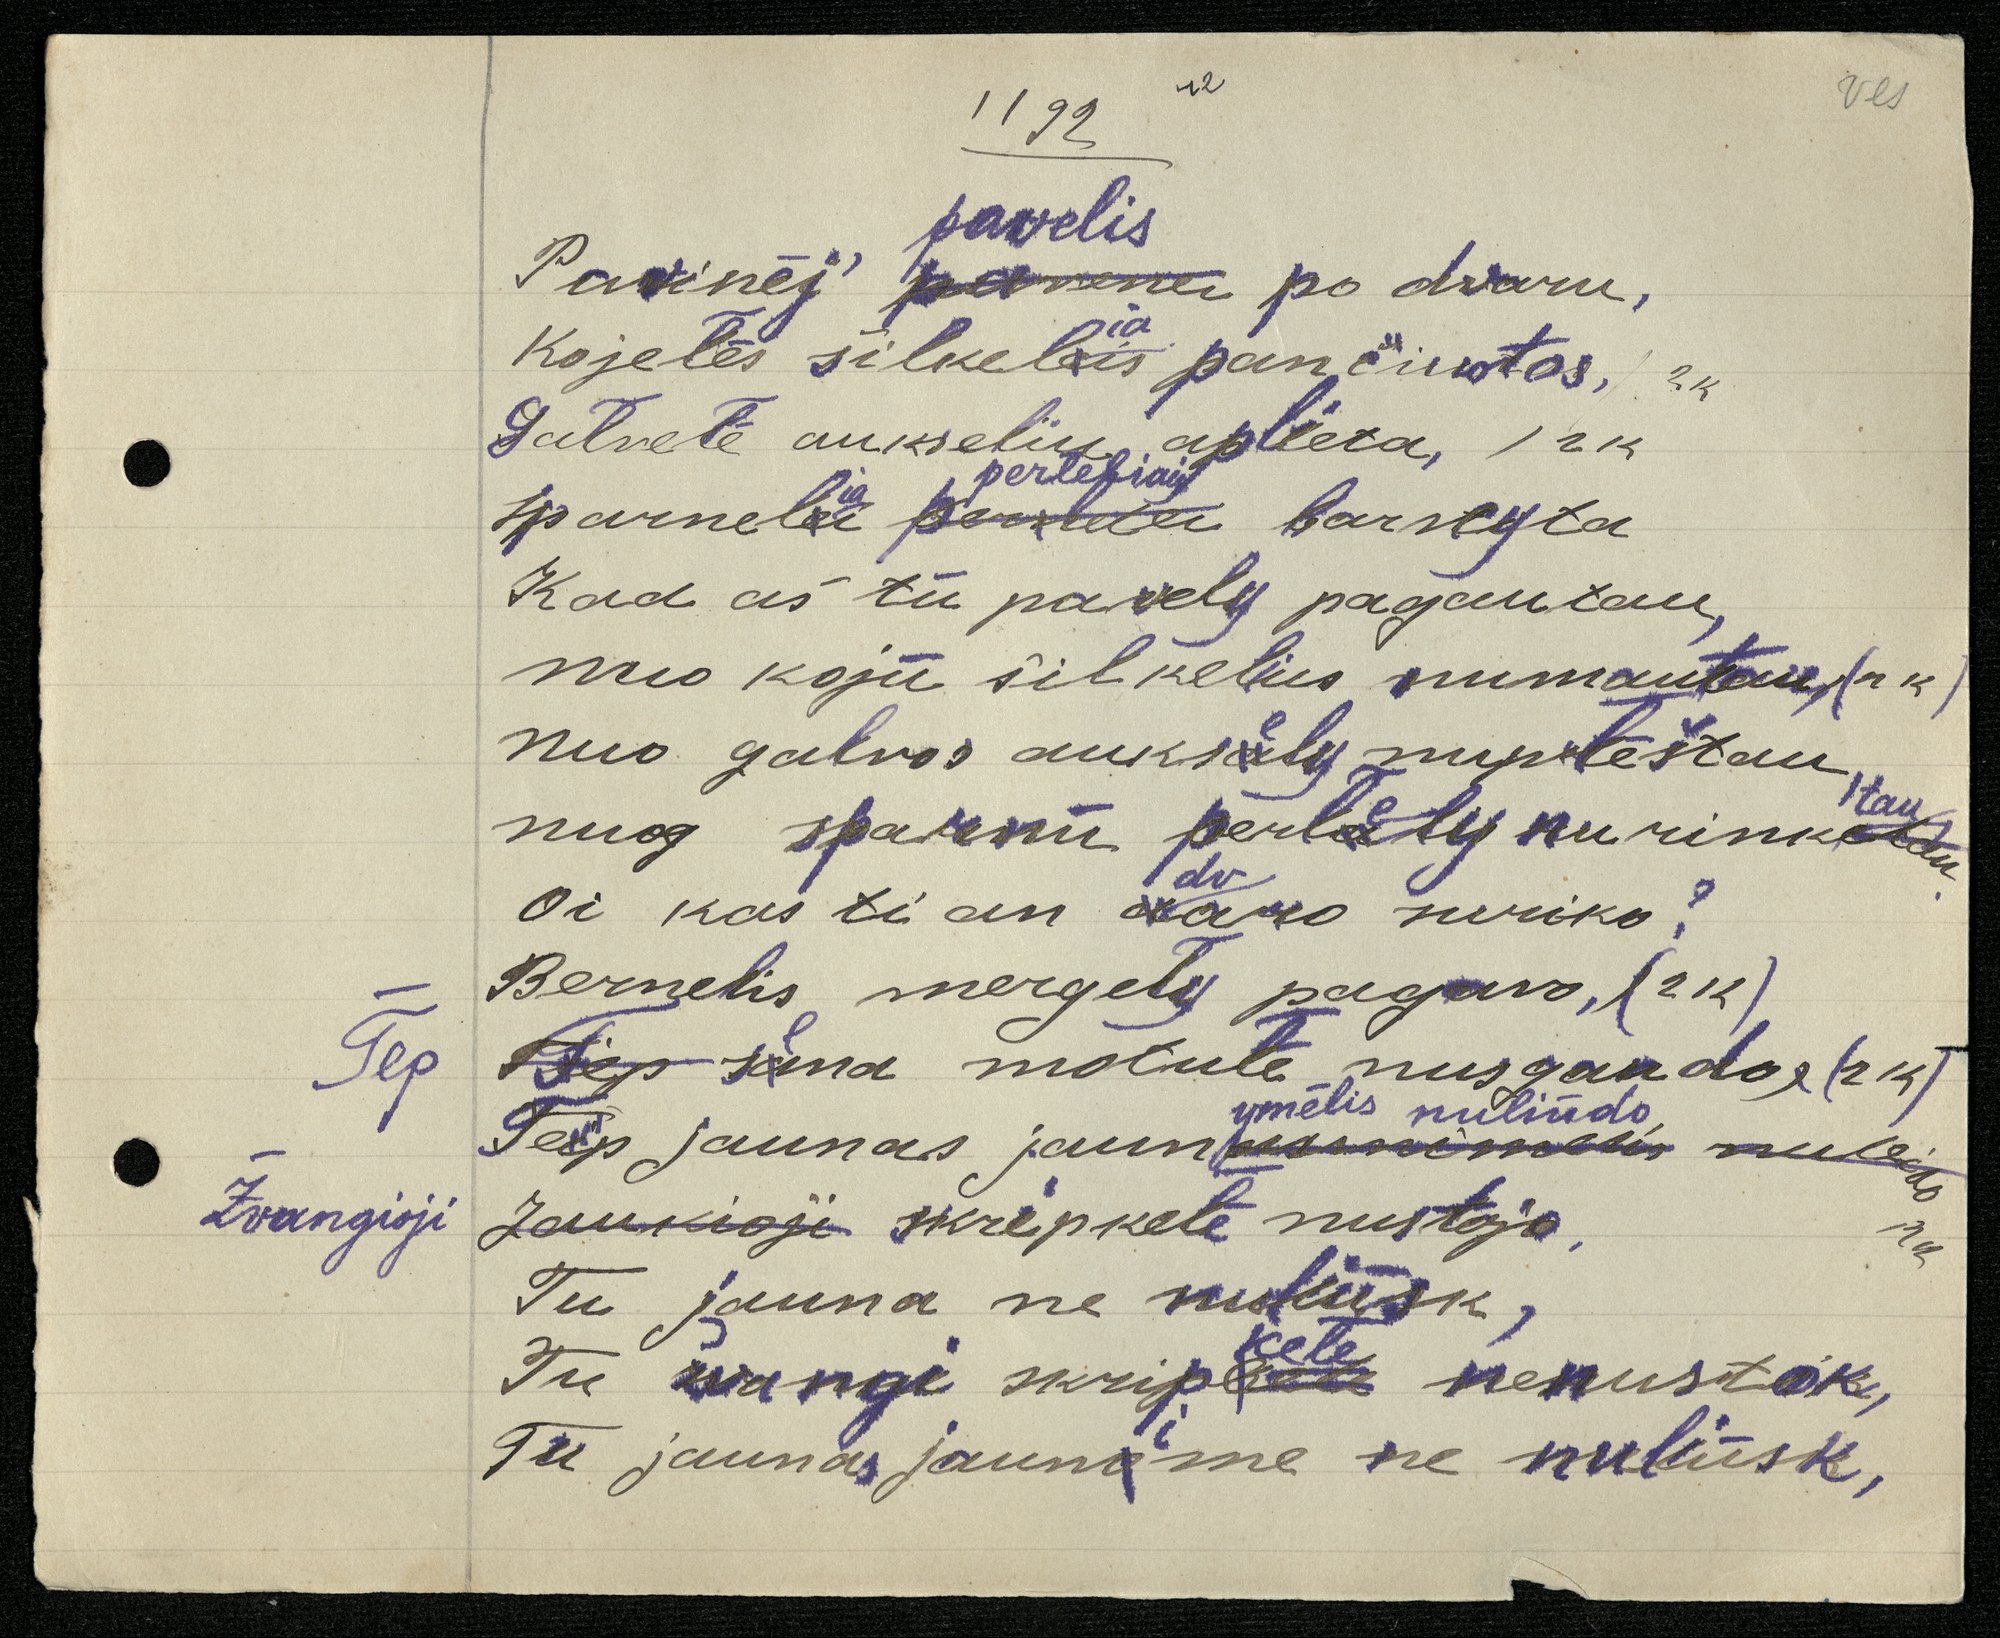 ves
1192 12
pavelis
Pavinėj' po dvaru,
Kojetės šilkeliais pančiuotos, 2k
Galvetė aukseliu aplieta, 2k
perleliais
sparneliai barstyta
Kad aš tū pavely pagautau,
nuo kojū šilkelius numautau, (2k)
nuo galvos auksely nuplėštau
nuog sparnū perlely nurinktau.
Oi kas ti an dvaro suriko?
Bernelis mergely pagavo, (2k)
Tep sena motutė nusgando, (2k)
Teip jaunas jaunymėlis nuliūdo 2k
Žvangioji skripketė nustojo.
Tu jauna ne nuliūsk,
Tu žvangi skripketė nenustok,
Tu jaunas jaunime ne nuliūsk,